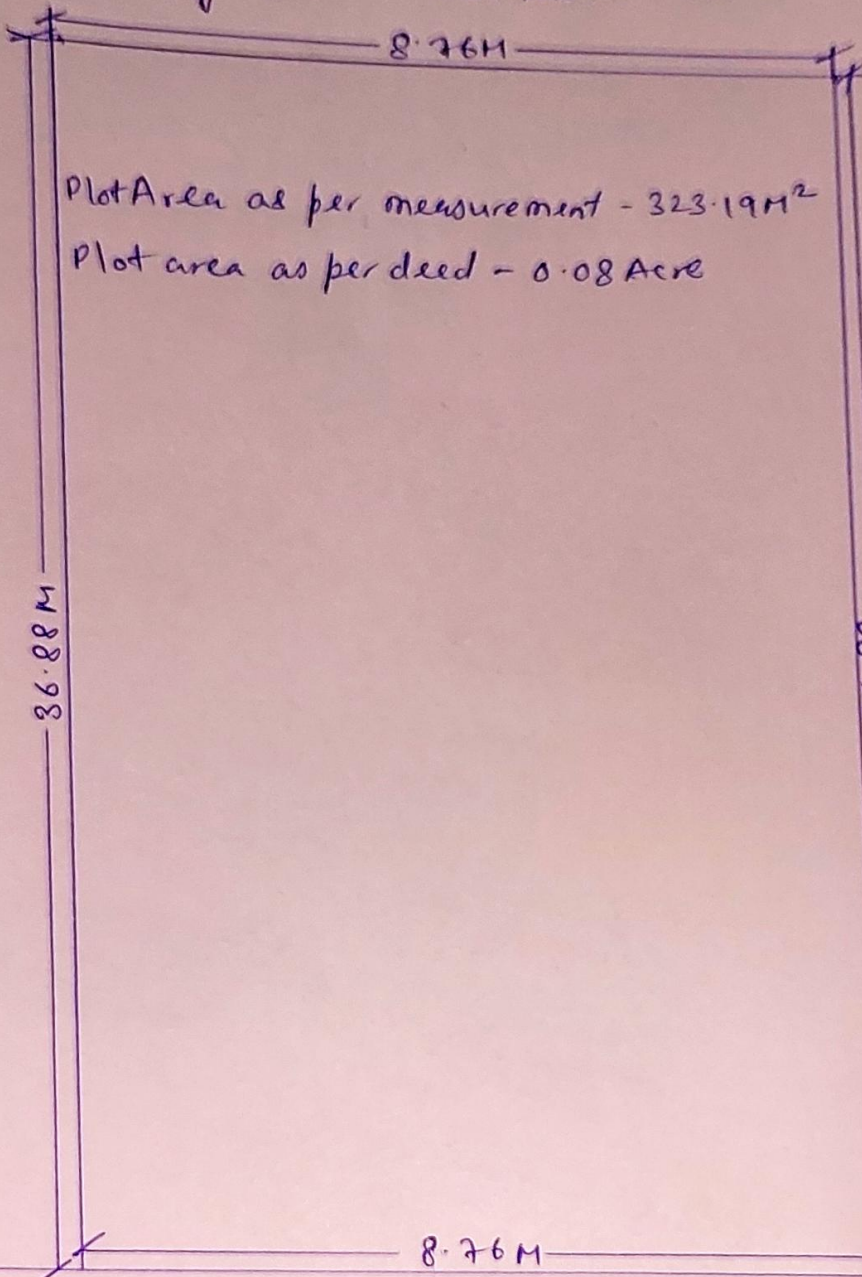 8.76M
Plot Area as per measurement - 323.19M²
Plot area as per deed - 0.08 Acre
36.88M
8.76M